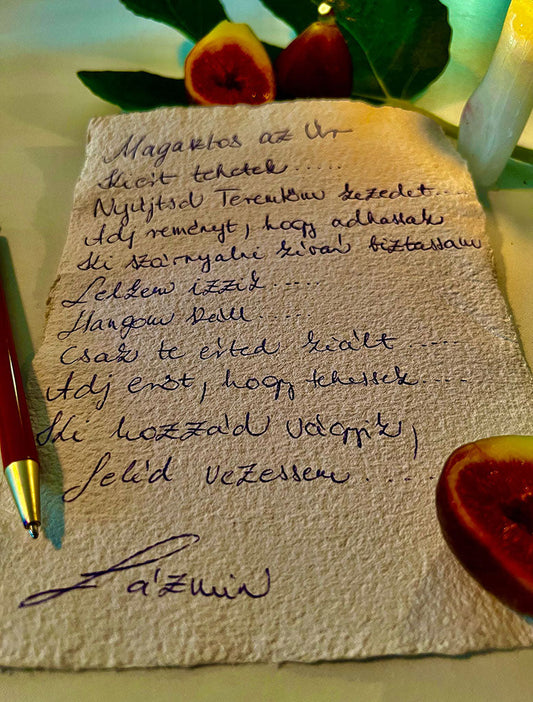 Magasztos az Úr
Kiért tehetek.....
Nyújtsd Teremtőm kezedet.....
Adj reményt, hogy adhassak
Ki szárnyalni kíván biztassam
Lelkem izzik.....
Hangom száll.....
Csak te érted kiált .....
Adj erőt, hogy tehessek.....
Ki hozzád vágyik,
Feléd vezessem .....
Jázmin